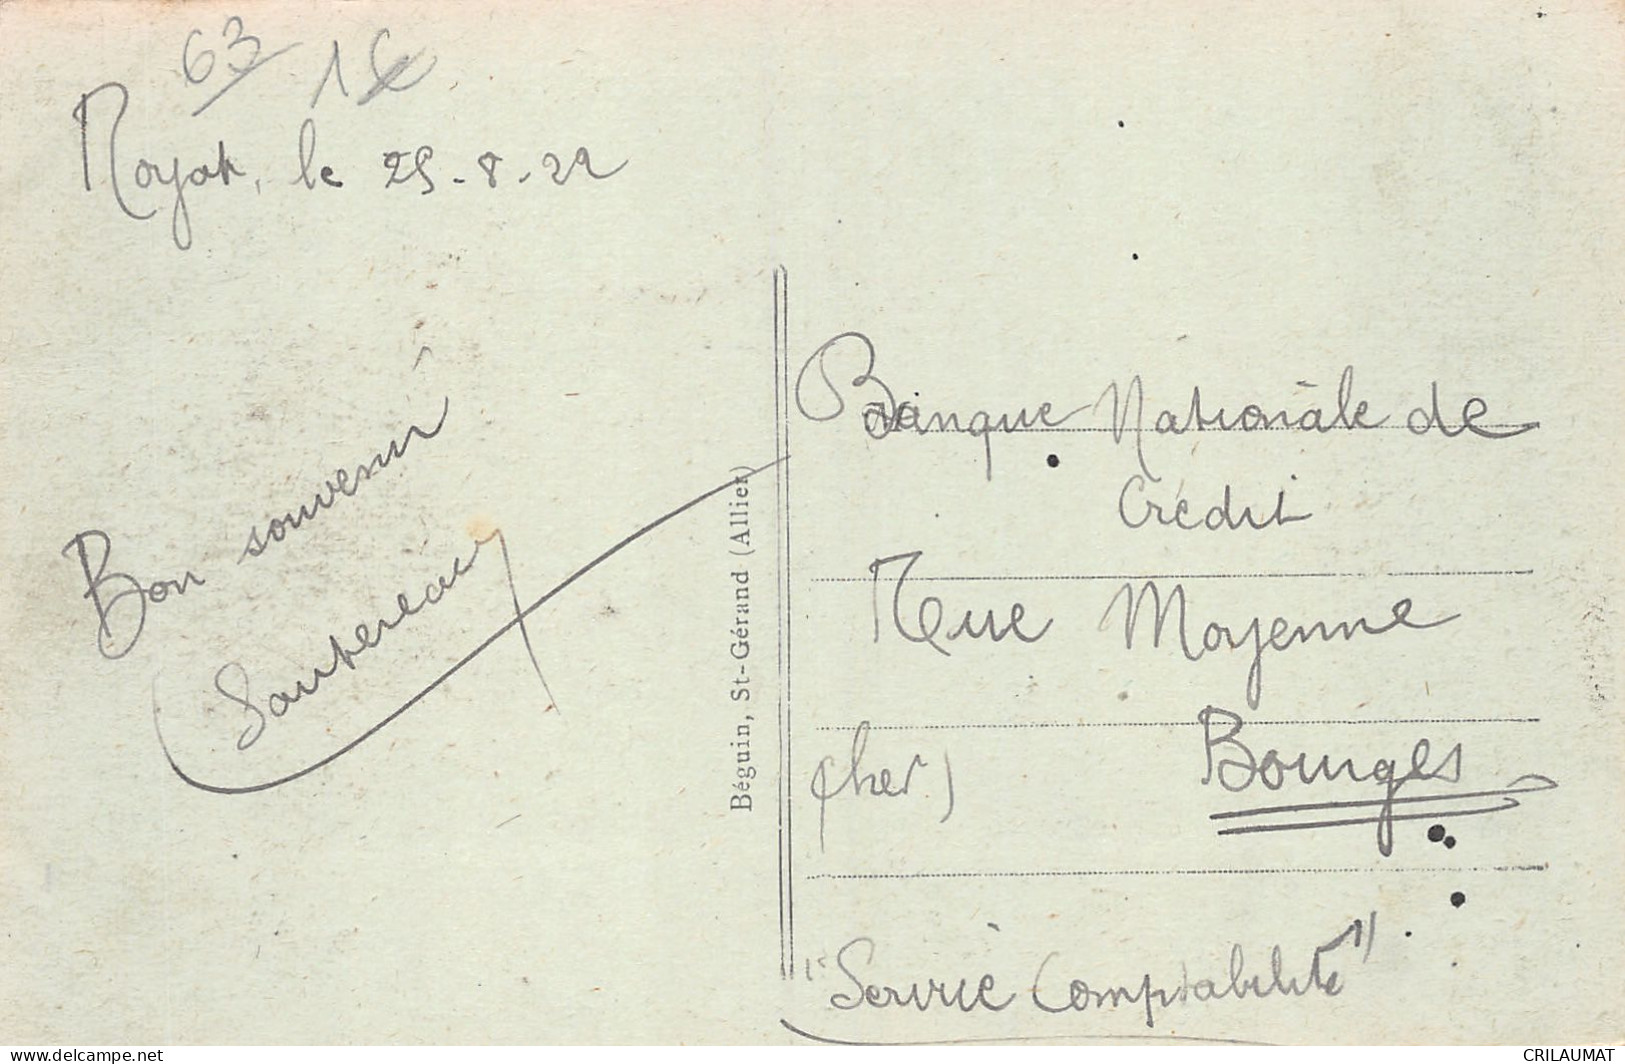 63 1€
Royat, le 25-8-22
Bon souvenir
Sautereau
Béguin, St-Gérand (Allier)
Banque Nationale de
Crédit
Rue Moyenne
(Cher) Bourges
"Service Comptabilité"
www.delcampe.net
CRILAUMAT